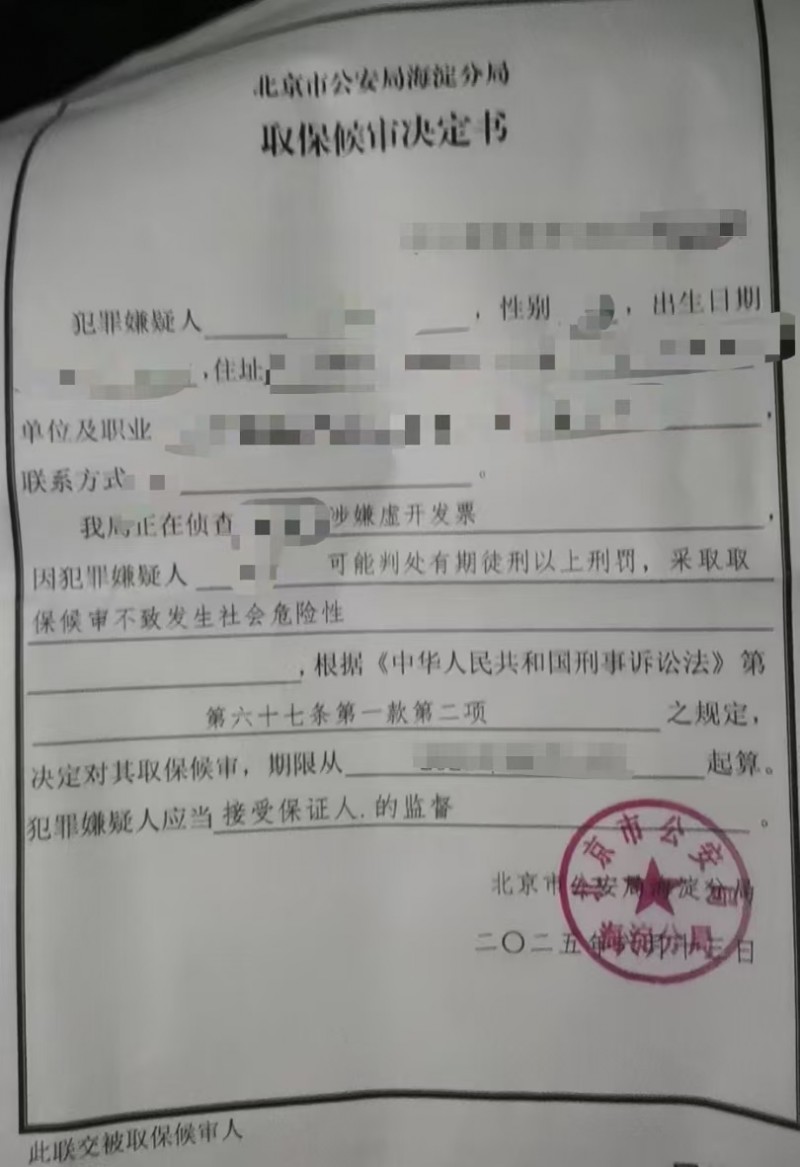 北京市公安局海淀分局
取保候审决定书
犯罪嫌疑人 ，性别 ，出生日期
，住址
单位及职业 ，
联系方式 。
我局正在侦查 涉嫌虚开发票 ，
因犯罪嫌疑人 可能判处有期徒刑以上刑罚，采取取
保候审不致发生社会危险性
，根据《中华人民共和国刑事诉讼法》第
第六十七条第一款第二项 之规定，
决定对其取保候审，期限从 起算。
犯罪嫌疑人应当接受保证人.的监督 。
北京市公安局海淀分局
二〇二五年 月十三日
北京市公安局
海淀分局
此联交被取保候审人